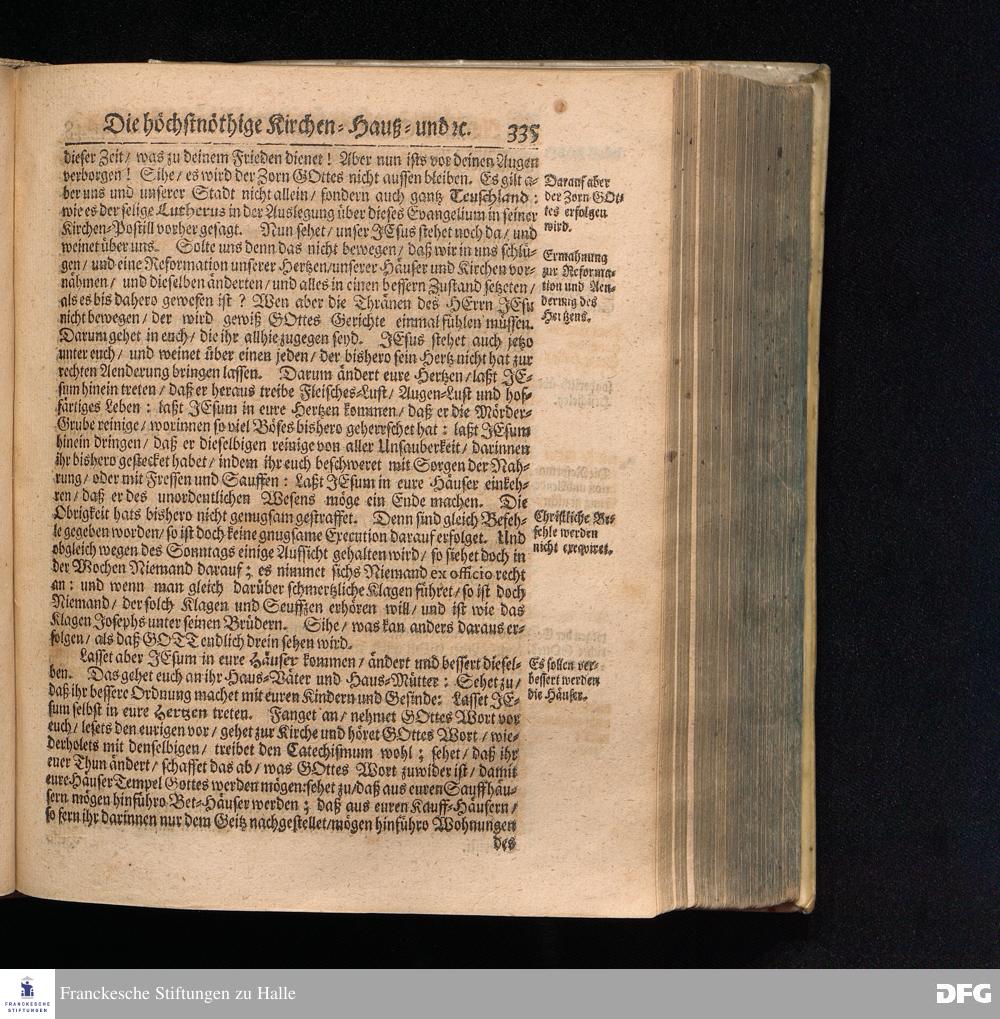 Die höchstnöthige Kirchen- Hauß- und ꝛc. 335
dieser Zeit / was zu deinem Frieden dienet ! Aber nun ists vor deinen Augen
verborgen ! Sihe / es wird der Zorn GOttes nicht aussen bleiben. Es gilt a-
ber uns und unserer Stadt nicht allein / sondern auch gantz Teuschland :
wie es der selige Lutherus in der Auslegung über dieses Evangelium in seiner
Kirchen-Postill vorher gesagt. Nun sehet / unser JEsus stehet noch da / und
weinet über uns. Solte uns denn das nicht bewegen / daß wir in uns schlü-
gen / und eine Reformation unserer Hertzen / unserer Häuser und Kirchen vor-
nähmen / und dieselben änderten / und alles in einen bessern Zustand setzeten /
als es bis dahero gewesen ist ? Wen aber die Thränen des HErrn JEsu
nicht bewegen / der wird gewiß GOttes Gerichte einmal fühlen müssen.
Darum gehet in euch / die ihr allhie zugegen seyd. JEsus stehet auch jetzo
unter euch / und weinet über einen jeden / der bishero sein Hertz nicht hat zur
rechten Aenderung bringen lassen. Darum ändert eure Hertzen / laßt JE-
sum hinein treten / daß er heraus treibe Fleisches-Lust / Augen-Lust und hof-
färtiges Leben : laßt JEsum in eure Hertzen kommen / daß er die Mörder-
Grube reinige / worinnen so viel Böses bishero geherrschet hat : laßt JEsum
hinein dringen / daß er dieselbigen reinige von aller Unsauberkeit / darinnen
ihr bishero gestecket habet / indem ihr euch beschweret mit Sorgen der Nah-
rung / oder mit Fressen und Sauffen : Laßt JEsum in eure Häuser einkeh-
ren / daß er des unordentlichen Wesens möge ein Ende machen. Die
Obrigkeit hats bishero nicht genugsam gestraffet. Denn sind gleich Befeh-
le gegeben worden / so ist doch keine gnugsame Execution darauf erfolget. Und
obgleich wegen des Sonntags einige Aufsicht gehalten wird / so siehet doch in
der Wochen Niemand darauf ; es nimmet sichs Niemand ex officio recht
an : und wenn man gleich darüber schmertzliche Klagen führet / so ist doch
Niemand / der solch Klagen und Seuffzen erhören will / und ist wie das
Klagen Josephs unter seinen Brüdern. Sihe / was kan anders daraus er-
folgen / als daß GOTT endlich drein sehen wird.
Lasset aber JEsum in eure Häuser kommen / ändert und bessert diesel-
ben. Das gehet euch an ihr Haus-Väter und Haus-Mütter : Sehet zu /
daß ihr bessere Ordnung machet mit euren Kindern und Gesinde: Lasset JE-
sum selbst in eure Hertzen treten. Fanget an / nehmet GOttes Wort vor
euch / lesets den eurigen vor / gehet zur Kirche und höret GOttes Wort / wie-
derholets mit denselbigen / treibet den Catechismum wohl ; sehet / daß ihr
euer Thun ändert / schaffet das ab / was GOttes Wort zuwider ist / damit
eure Häuser Tempel Gottes werden mögen: sehet zu / daß aus euren Sauffhäu-
sern mögen hinführo Bet-Häuser werden ; daß aus euren Kauff-Häusern /
so fern ihr darinnen nur dem Geitz nachgestellet / mögen hinführo Wohnungen
des
Darauf aber
der Zorn GOt-
tes erfolgen
wird.
Ermahnung
zur Reforma-
tion und Aen-
derung des
Hertzens.
Christliche Be-
fehle werden
nicht exequiret.
Es sollen ver-
bessert werden
die Häuser.
FRANCKESCHE
STIFTUNGEN
Franckesche Stiftungen zu Halle
DFG